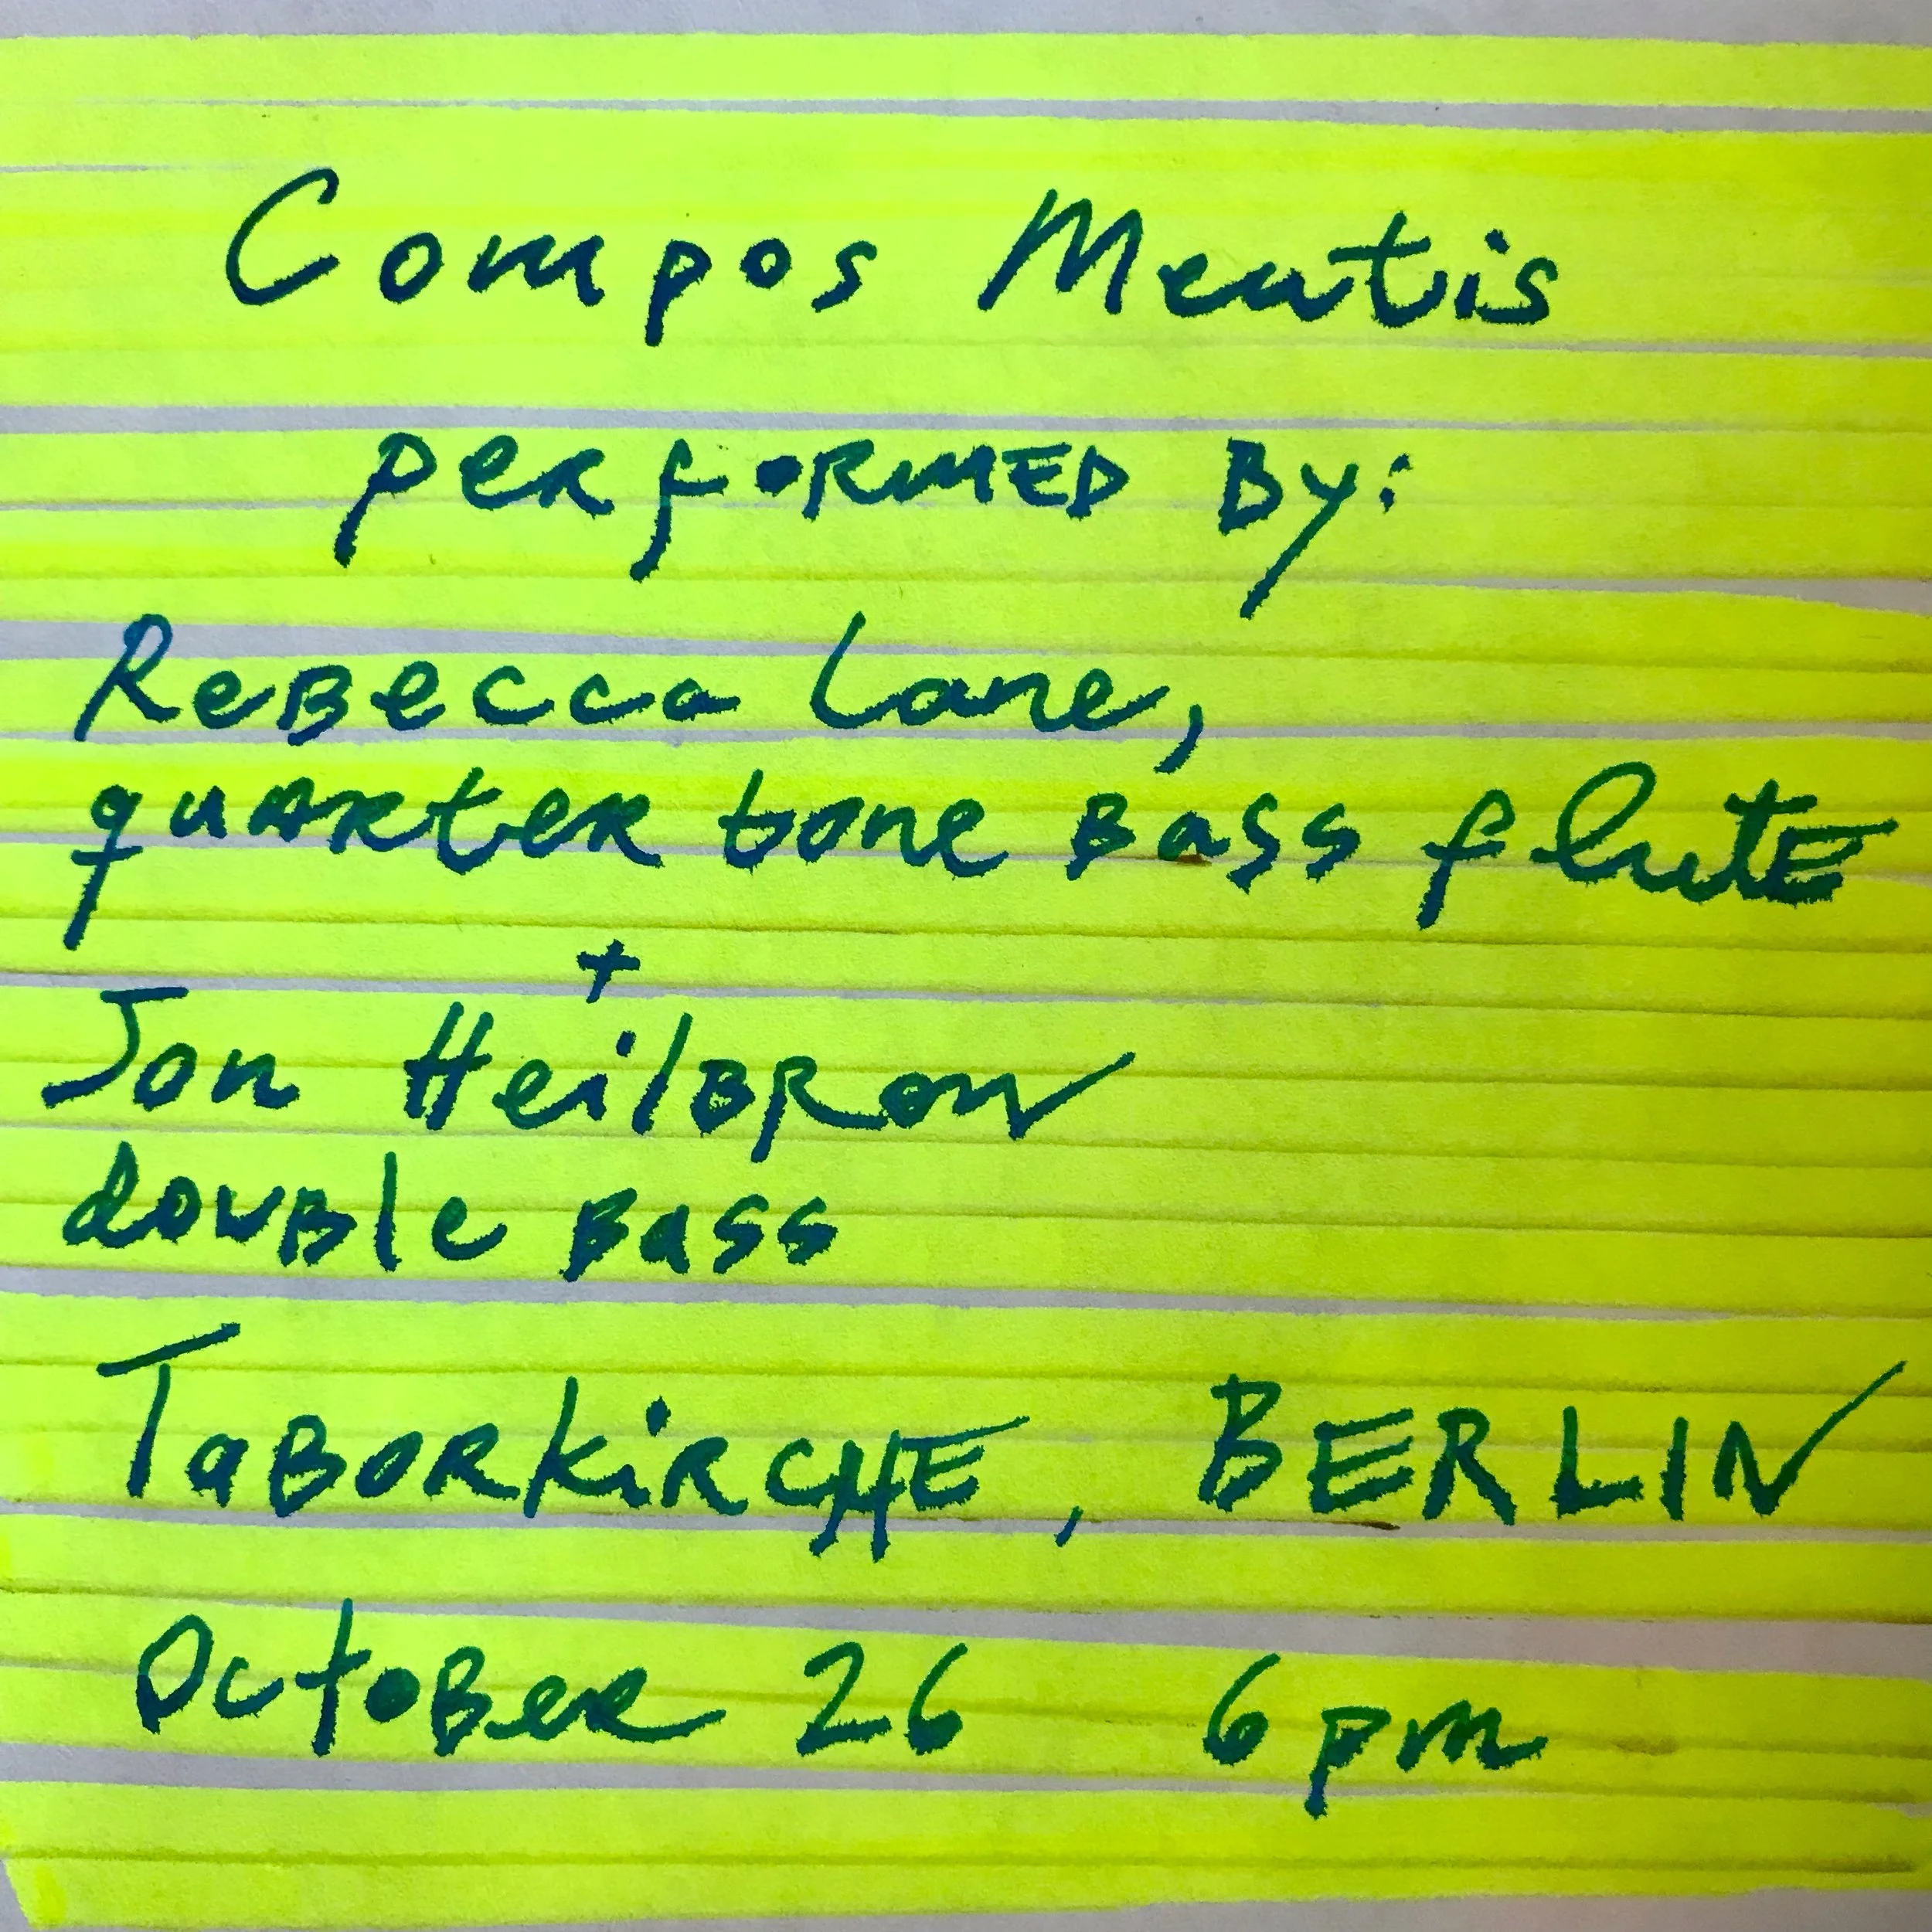 Compos Mentis
performed By:
Rebecca Lane,
quarter tone Bass flute
+
Jon Heilbron
double Bass
Taborkirche, BERLIN
October 26 6pm